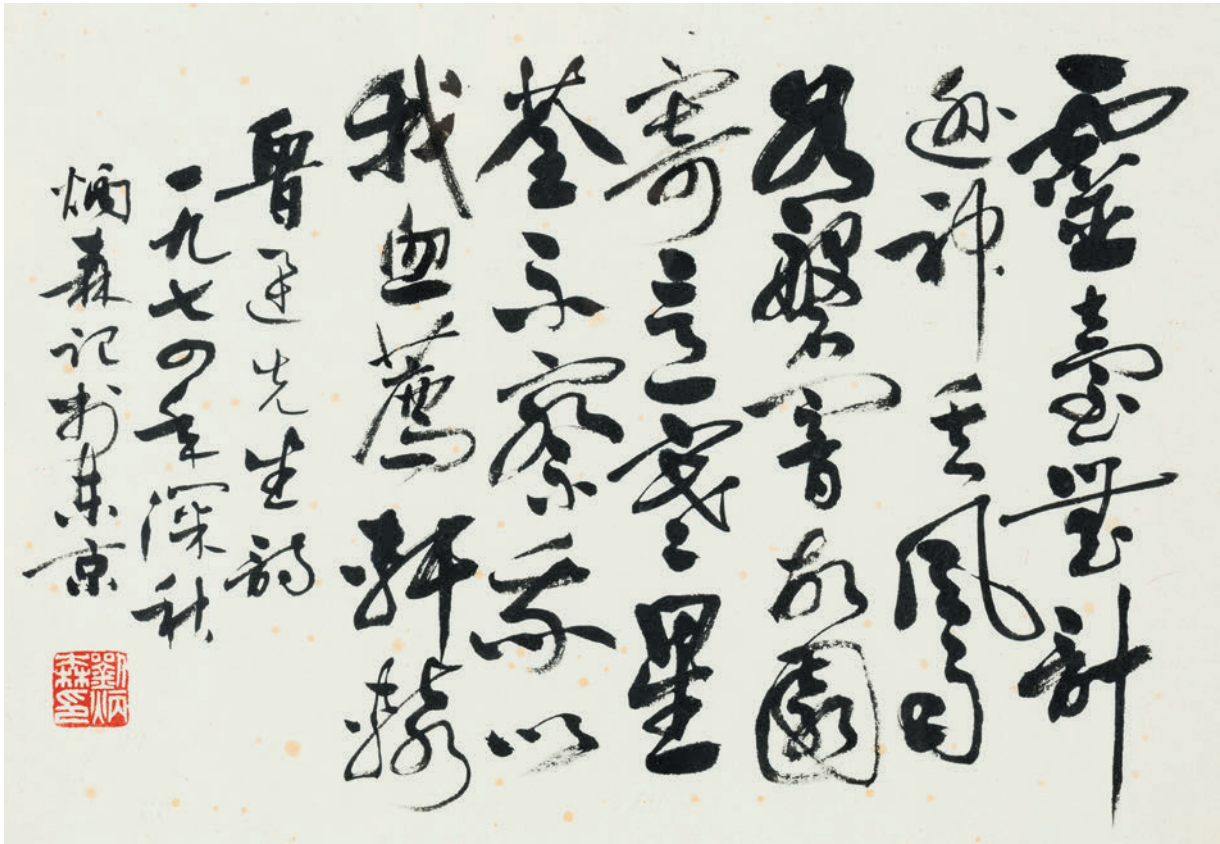 靈臺無計
逃神矢風雨
如磐闇故園
寄意寒星
荃不察我以
我血薦軒轅
魯迅先生詩
一九七四年深秋
炳森記於東京
劉炳森印